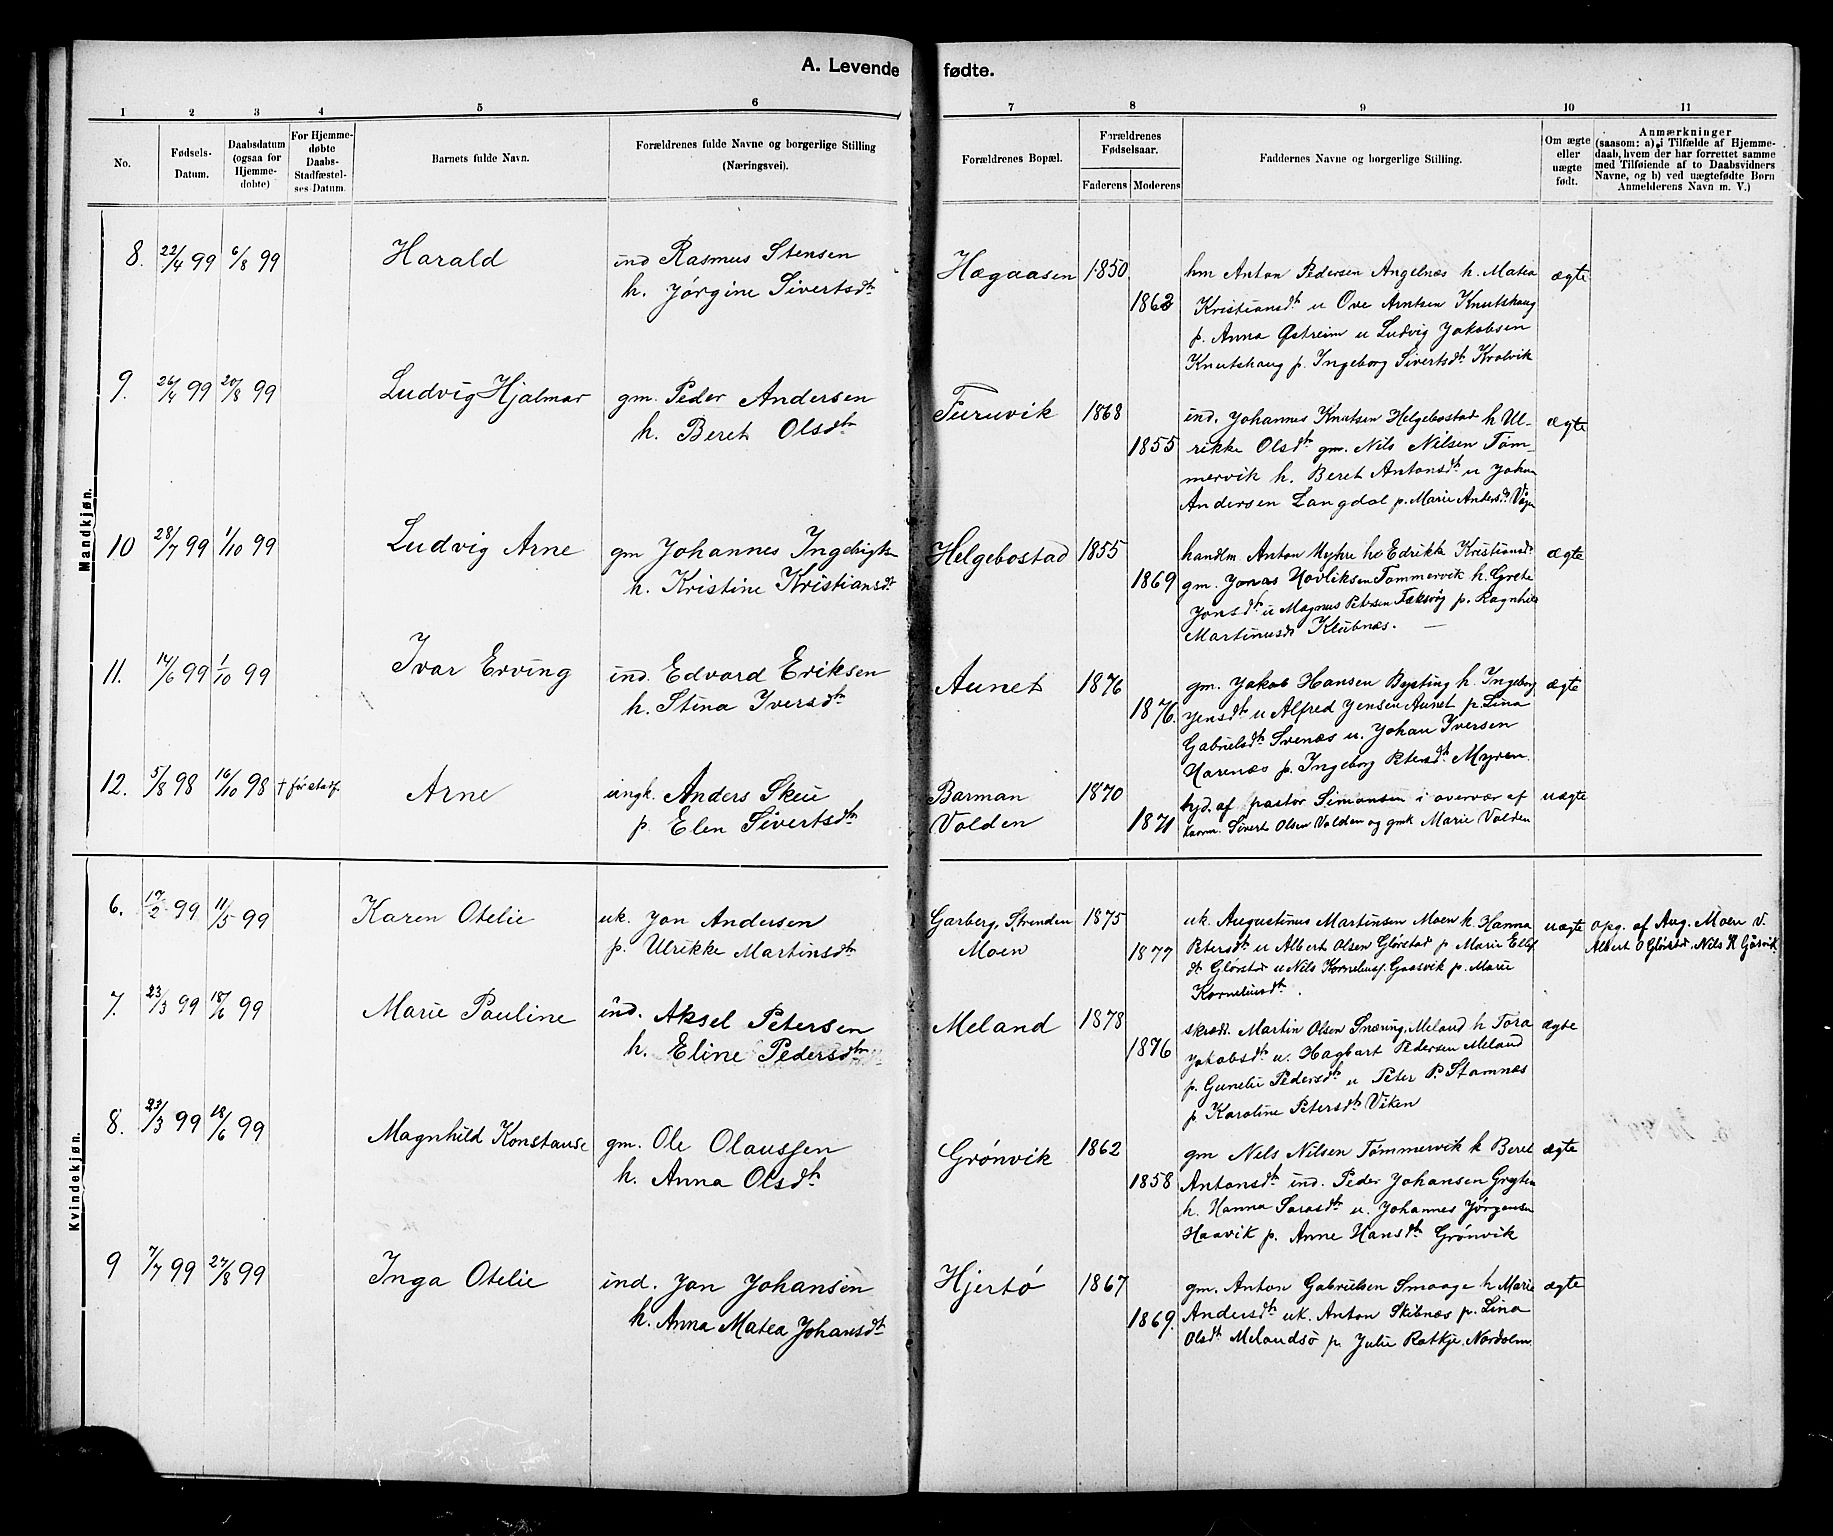 A. Levende fødte.
1 2 3 4 5 6 7 8 9 10 11
No. Fødsels-Datum. Daabsdatum (ogsaa for Hjemme-døbte) For Hjemme-døbte Daabs-Stadfæstel-ses-Datum. Barnets fulde Navn. Forældrenes fulde Navne og borgerlige Stilling (Næringsvei). Forældrenes Bopæl. Forældrenes Fødselsaar. Faderens Moderens Faddernes Navne og borgerlige Stilling. Om ægte eller uægte født. Anmærkninger (saasom: a) i Tilfælde af Hjemme-daab, hvem der har forrettet samme med Tilføiende af to Daabsvidners Navne, og b) ved uægtefødte Børn Anmelderens Navn m. V.)
Mandkjøn.
8. 22/4 99 6/8 99 Harald ind Rasmus Stensen Hægaasen 1850 hm Anton Pedersen Angelnæs h. Matea ægte
h. Jørgine Sivertsdtr 1862 Kristiansdtr u Ove Arntsen Knutshaug
p. Anna Østreim u Ludvig Jakobsen
Knutshaug p. Ingeborg Sivertsdtr Kralvik
9. 26/4 99 20/8 99 Ludvig Hjalmar gm. Peder Andersen Furuvik 1868 ind. Johannes Knutsen Helgebostad h Ul- ægte
h. Beret Olsdtr 1855 rikke Olsdtr gm. Nils Nilsen Tøm-
mervik h. Beret Antonsdtr u Johan
Andersen Langdal p. Marie Andersdtr
10 28/7 99 1/10 99 Ludvig Arne gm Johannes Ingebrigts Helgebostad 1855 handlm. Anton Myhre h Edrikke Kristiansdtr ægte
h. Kristine Kristiansdtr 1869 gm. Jonas Hovliksen Tømmervik h. Grete
Jonsdtr u Magnus Petersen p. Ragnhild
Martinusdtr Klubnæs.
11. 14/6 99 1/10 99 Ivar Erving ind. Edvard Eriksen Aunet 1876 gm. Jakob Hansen Bysting h. Ingeborg ægte
h. Stina Iversdtr 1876. Jensdtr u Alfred Jensen Aunet p. Lina
Gabrielsdtr Svenæs u. Johan Iversen
Harenæs p. Ingeborg Petersdtr Myren.
12. 5/8 98 16/10 98 † før stadf. Arne ungk. Anders Skeii Barman 1870 hjd. af pastor Simonsen i overvær af uægte
p. Elen Sivertsdtr Volden 1871 Sivert Olsen Volden og gmk Marie Volden
Kvindekjøn.
6. 17/2 99 11/5 99 Karen Otelie uk. Jon Andersen Garberg, Strenden 1875 uk. Augustinus Martinsen Moen h. Hanna uægte opg. af Aug. Moen v.
p. Ulrikke Martinsdtr Moen 1877 Petersdtr u Albert Olsen Glørstad p Marie Ellef Albert O Glørstad. Nils K Gjøsvik.
dtr Glørstad u Nils Korneliusf. Gaasvik p. Marie
Korneliusdtr.
7. 23/3 99 18/6 99 Marie Pauline ind. Aksel Petersen Meland 1878 skrædr. Martin Olsen Snæring, Meland h Tora ægte
h. Eline Pedersdtr 1876 Jakobsdtr u. Hagbart Pedersen Meland
p. Gunelie Pedersdtr u Peter P. Stamnæs
p Karoline Petersdtr Viken
8. 23/3 99 18/6 99 Magnhild Konstanse gm. Ole Olaussen Grønvik 1862 gm Nels Nilsen Tømmervik h Beret ægte
h. Anna Olsdtr 1858 Antonsdtr ind. Peder Johansen Gryten
h. Hanna Sarasdtr u. Johannes Jørgensen
Haavik p. Anne Hansdtr Grønvik
9 7/7 99 27/8 99 Inga Otelie ind. Jon Johansen Hjertø 1867 gm. Anton Gabrielsen Smaage h Marie ægte
h. Anna Matea Johansdtr 1869. Andersdtr uk. Anton Skibnæs p. Lina
Olsdtr Melandsø p. Julie Ratkje. Nordolm.